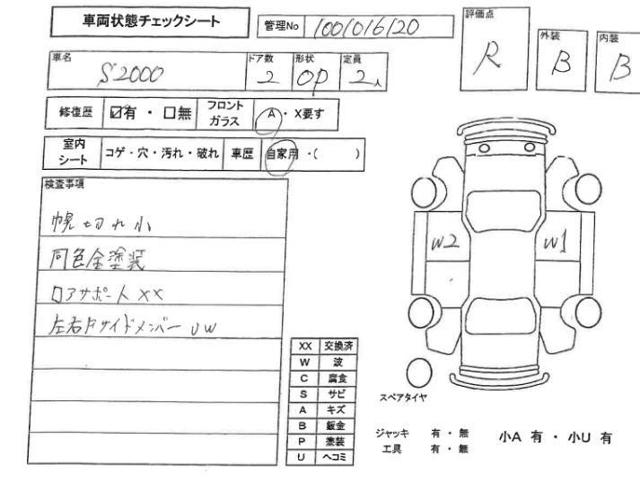 車両状態チェックシート 管理No 1001016120
評価点 R
外装 B
内装 B
車名 S2000 ドア数 2 形状 OP 定員 2人
修復歴 ☑有・□無 フロントガラス A・X要す
室内シート コゲ・穴・汚れ・破れ 車歴 自家用・( )
検査事項
幌切れ小
同色全塗装
ロアサポート XX
左右Fサイドメンバー UW
W2 W1
XX 交換済
W 波
C 腐食
S サビ
A キズ
B 鈑金
P 塗装
U ヘコミ
スペアタイヤ
ジャッキ 有・無
工具 有・無
小A 有・小U 有